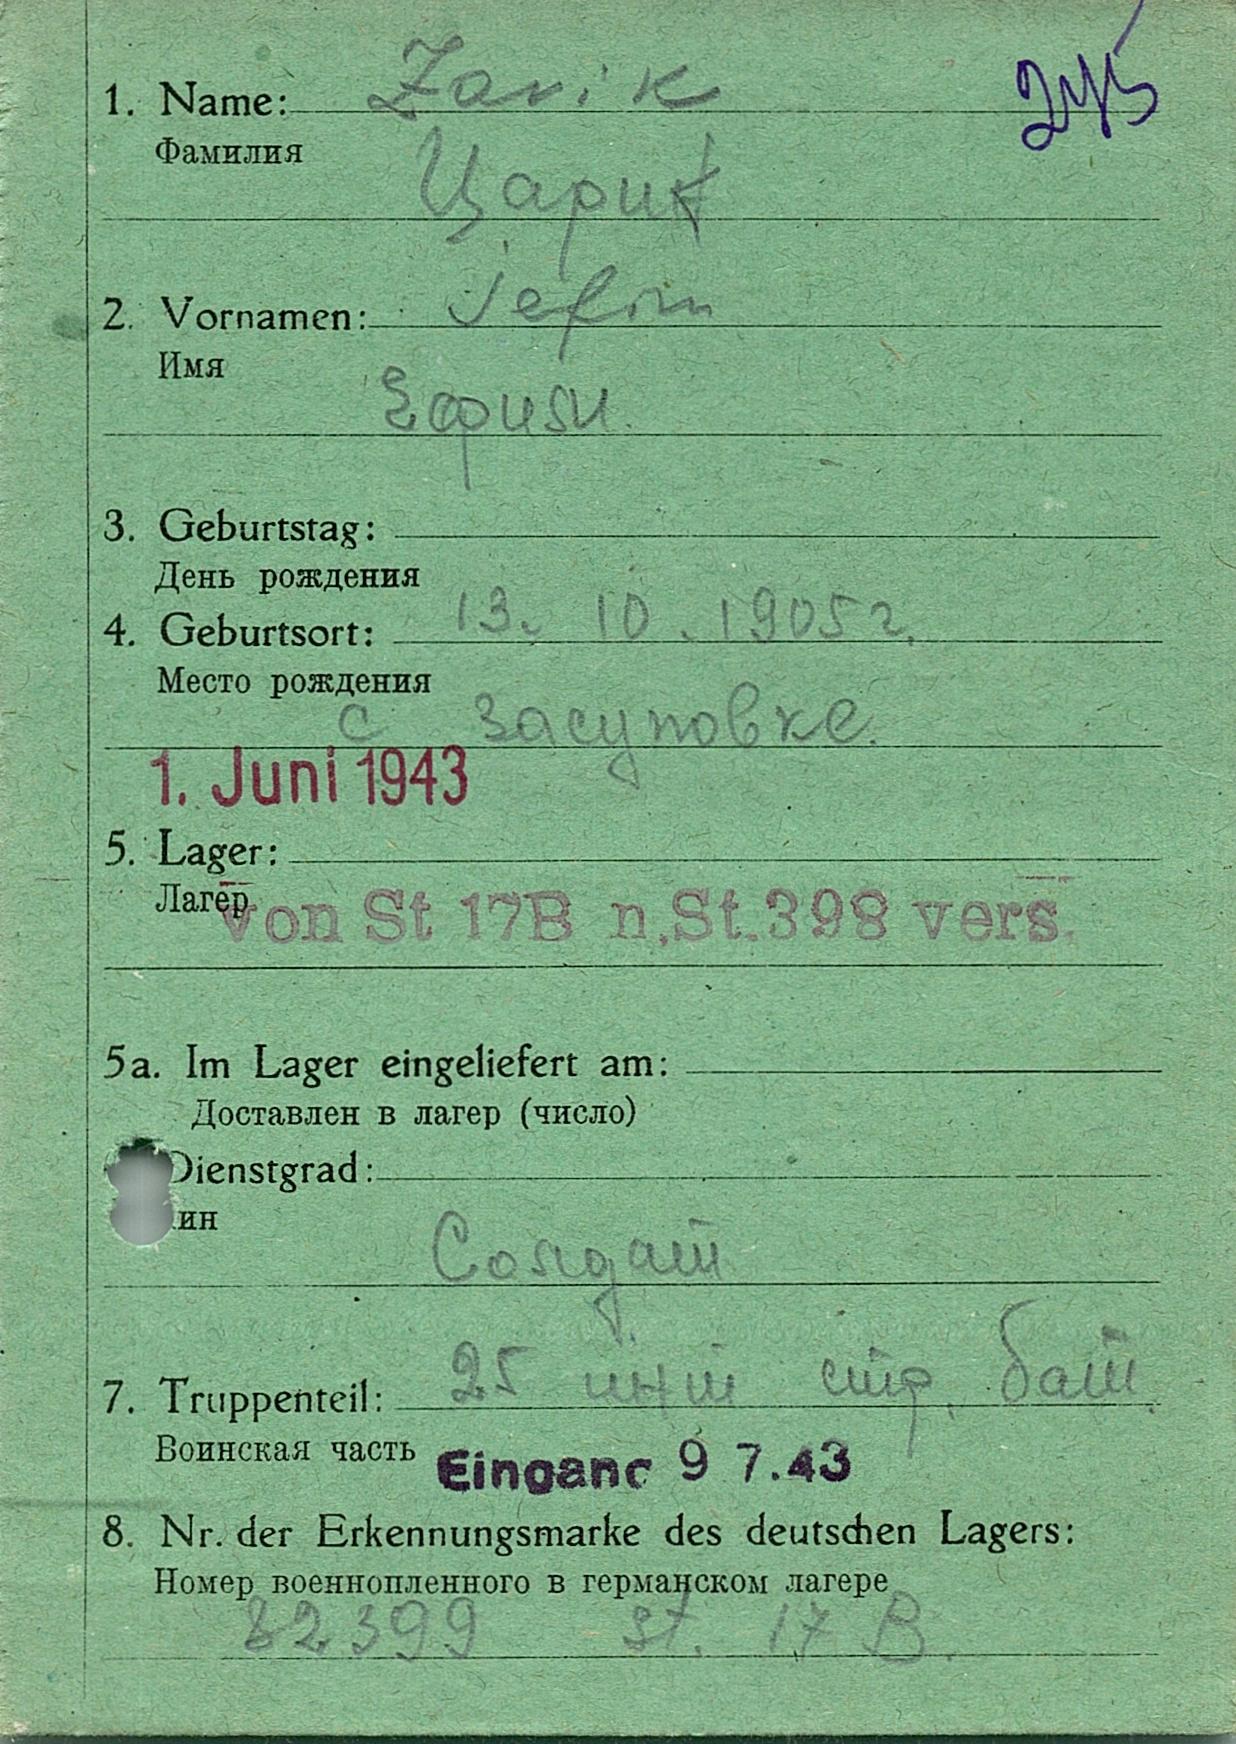 245
1. Name: Zarik
Фамилия
Царик
2. Vornamen: Jefim
Имя
Ефим
3. Geburtstag:
День рождения
13. 10. 1905 г.
4. Geburtsort:
Место рождения
с Засуповке.
1. Juni 1943
5. Lager:
Лагер
von St 17B n. St. 398 vers.
5a. Im Lager eingeliefert am:
Доставлен в лагер (число)
Dienstgrad:
ин
Солдат
7. Truppenteil: 25 инт стр. бат.
Воинская часть
Eingang 9 7.43
8. Nr. der Erkennungsmarke des deutschen Lagers:
Номер военнопленного в германском лагере
82399 St. 17 B.